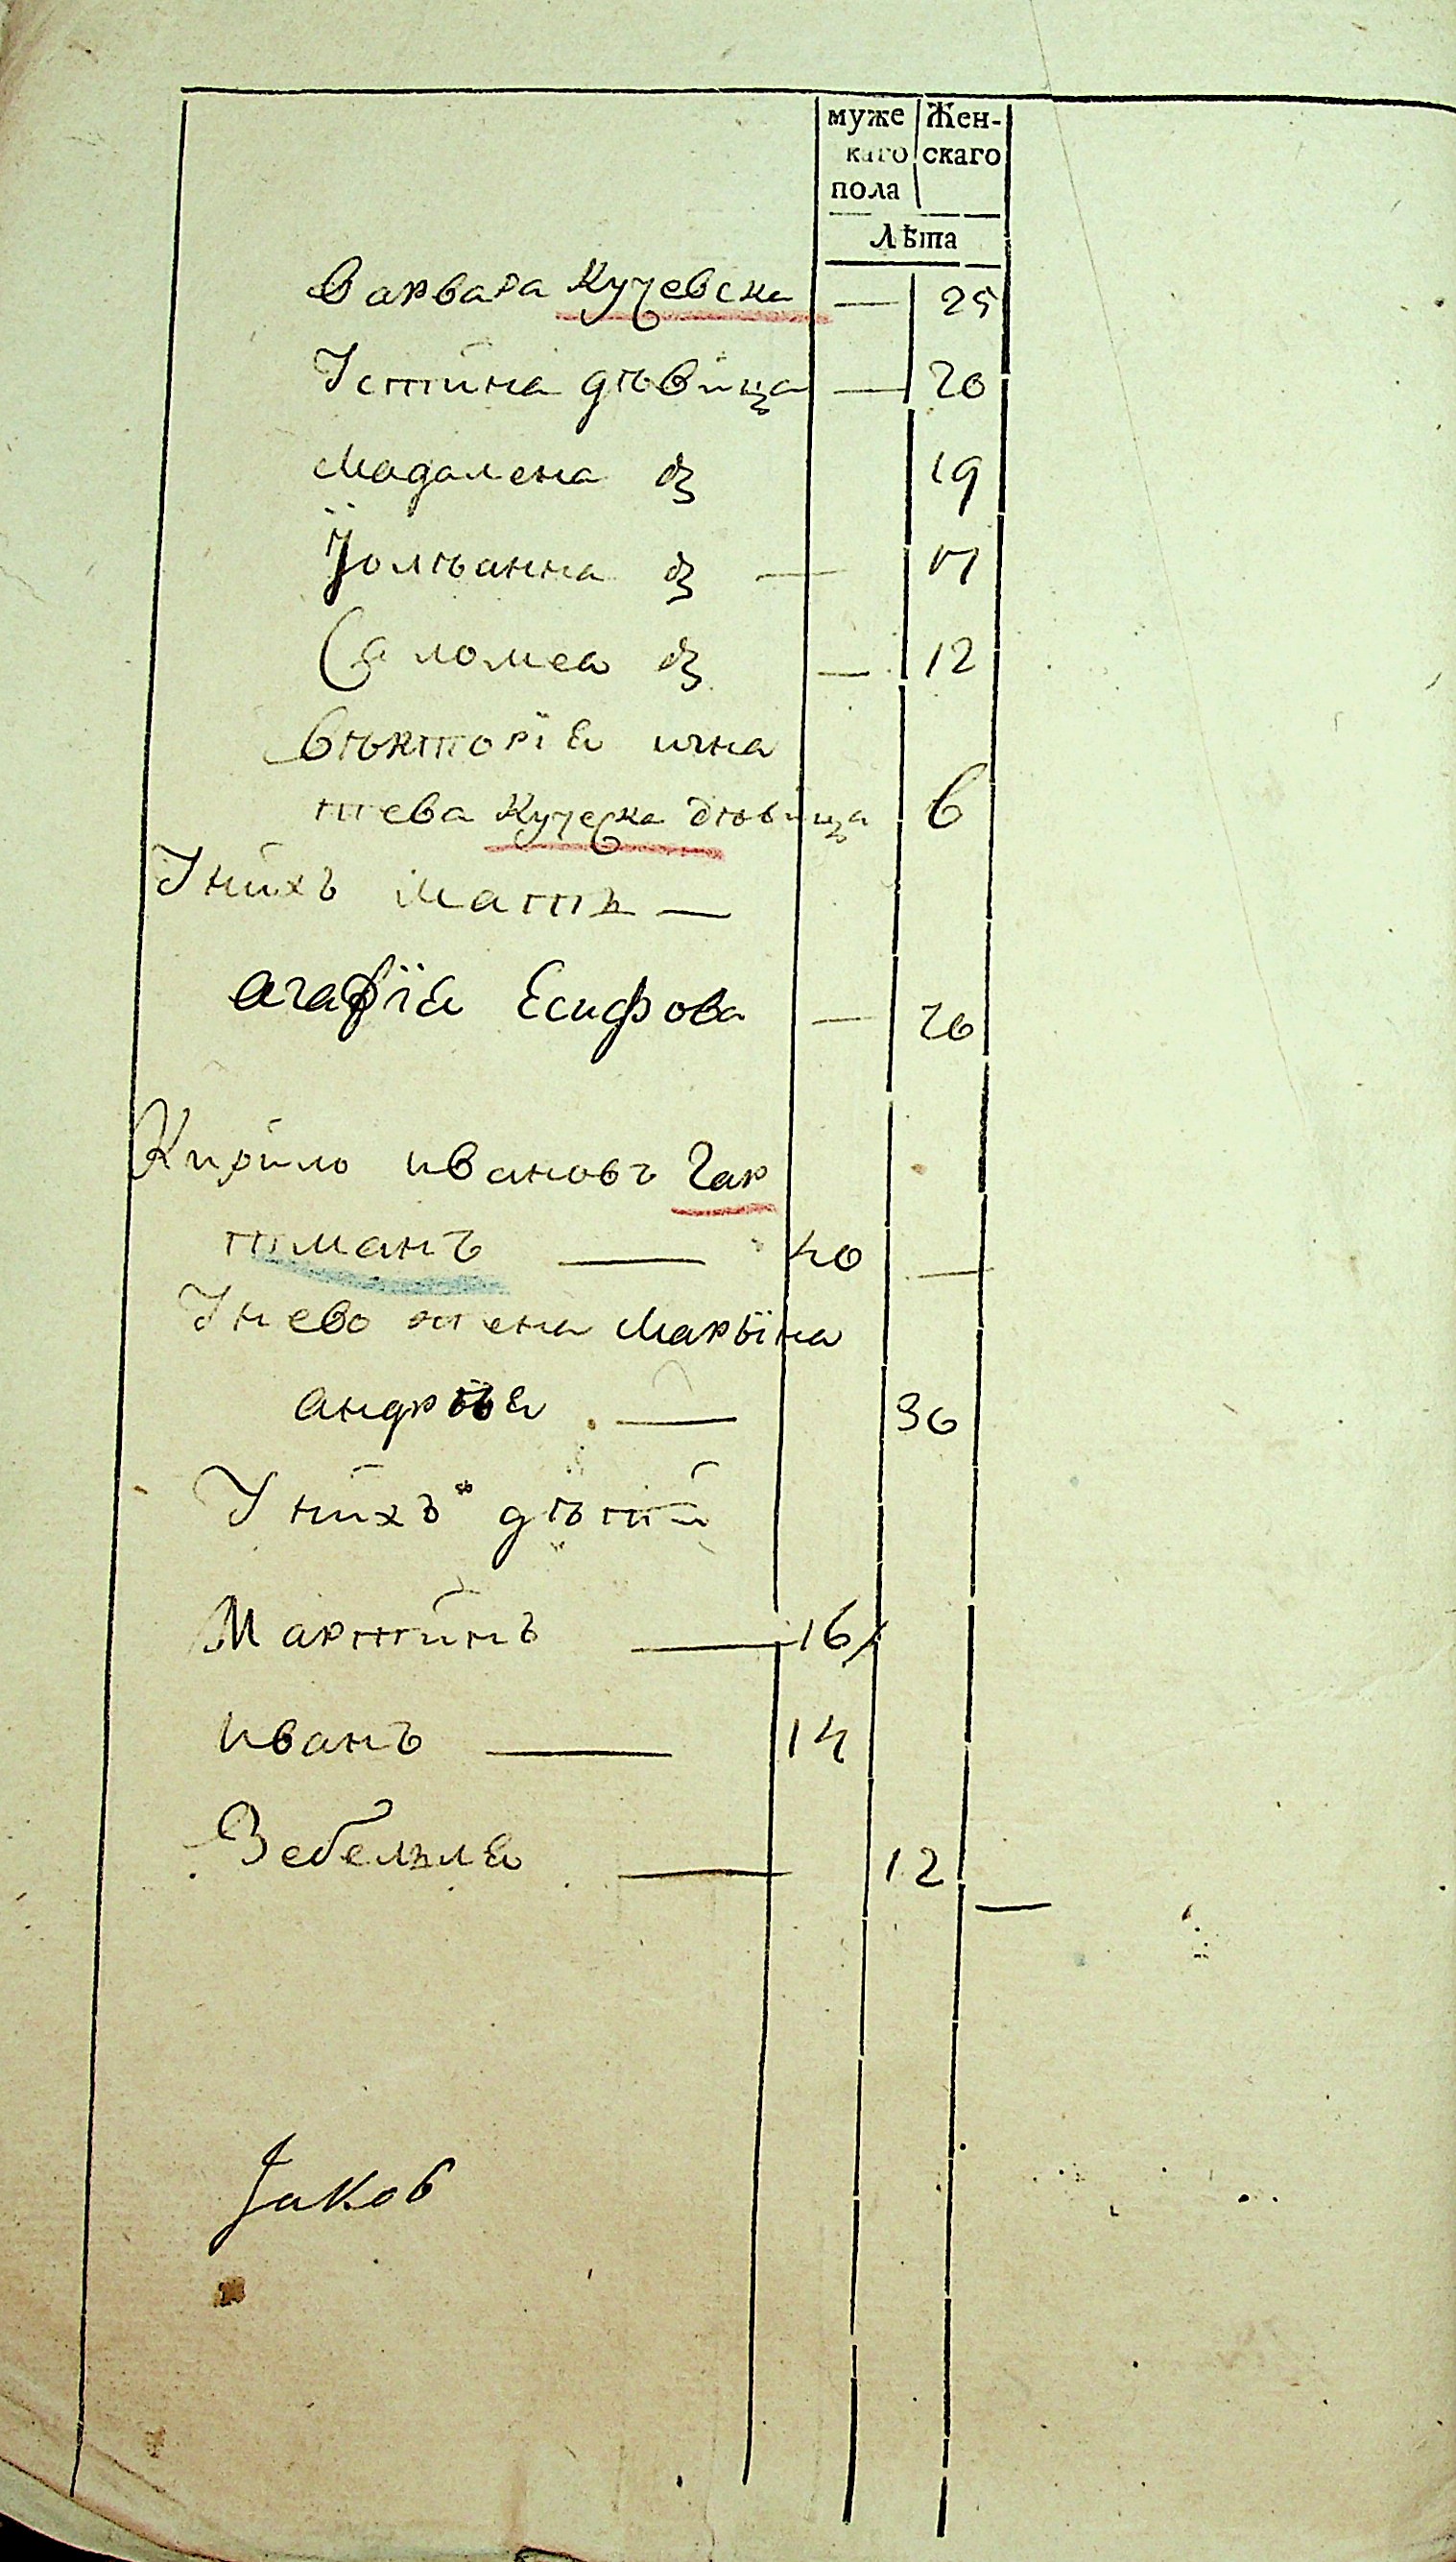 муже Жен-
каго скаго
пола
Лѣта
Варвара Кучевска — 25
Устина дѣвица — 20
Мадалена д 19
Уолѣанна д — 17
Саломеа д — 12
вѣкторїя игна
тева Куческа дѣвица 6
У нихъ мать —
агафїя Есифова — 70
Кирило ивановъ Гар
тманъ — 40 —
У нево жена Марьїна
андрѣя — 36
У нихъ дѣтий
Мартинъ — 16
иванъ — 14
Зебелья — 12 —
Jаков